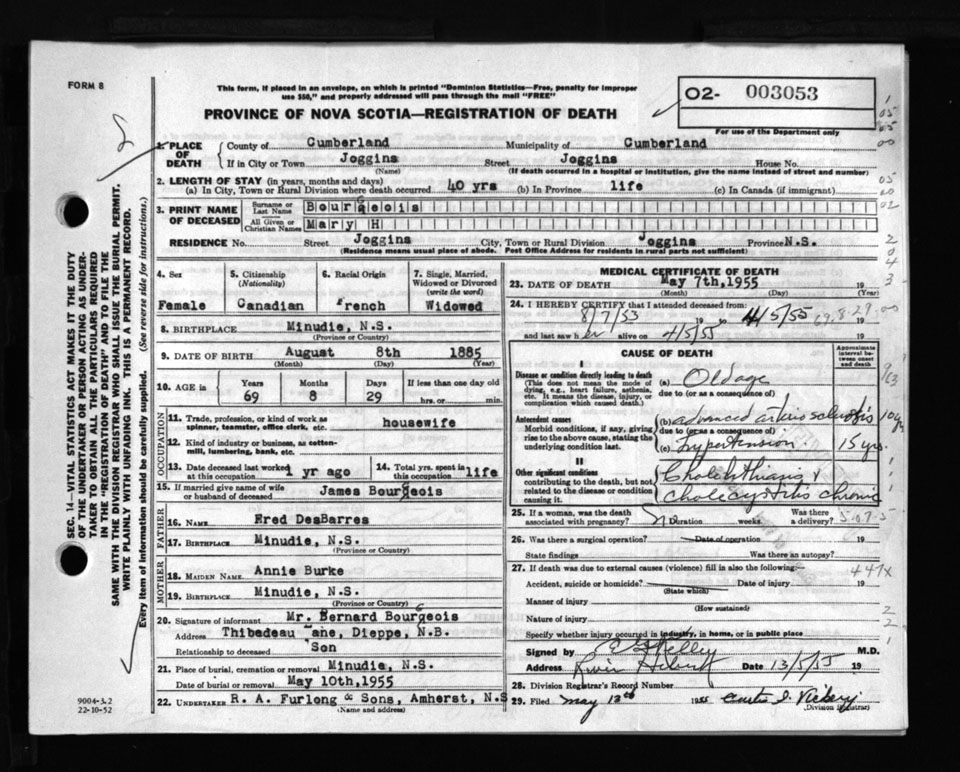 FORM 8
This form, if placed in an envelope, on which is printed "Dominion Statistics—Free, penalty for improper
use $50," and properly addressed will pass through the mail "FREE"
O2- 003053
For use of the Department only
PROVINCE OF NOVA SCOTIA—REGISTRATION OF DEATH
1. PLACE OF DEATH
County of Cumberland Municipality of Cumberland
If in City or Town Joggins Street Joggins House No.
(Name) (If death occurred in a hospital or institution, give the name instead of street and number)
2. LENGTH OF STAY (in years, months and days)
(a) In City, Town or Rural Division where death occurred 40 yrs (b) In Province life (c) In Canada (if immigrant)
3. PRINT NAME OF DECEASED
Surname or Last Name Bourgeois
All Given or Christian Names Mary H
RESIDENCE No. Street Joggins City, Town or Rural Division Joggins Province N.S.
(Residence means usual place of abode. Post Office Address for residents in rural parts not sufficient)
4. Sex Female
5. Citizenship (Nationality) Canadian
6. Racial Origin French
7. Single, Married, Widowed or Divorced (write the word) Widowed
8. BIRTHPLACE Minudie, N.S.
(Province or Country)
9. DATE OF BIRTH August 8th 1885
(Month) (Day) (Year)
10. AGE in Years 69 Months 8 Days 29 If less than one day old hrs. or min.
OCCUPATION
11. Trade, profession, or kind of work as spinner, teamster, office clerk, etc. housewife
12. Kind of industry or business, as cotton-mill, lumbering, bank, etc.
13. Date deceased last worked at this occupation 1 yr ago
14. Total yrs. spent in this occupation life
15. If married give name of wife or husband of deceased James Bourgeois
FATHER
16. NAME Fred DesBarres
17. BIRTHPLACE Minudie, N.S.
(Province or Country)
MOTHER
18. MAIDEN NAME Annie Burke
19. BIRTHPLACE Minudie, N.S.
(Province or Country)
20. Signature of informant Mr. Bernard Bourgeois
Address Thibadeau Lane, Dieppe, N.B.
Relationship to deceased Son
21. Place of burial, cremation or removal Minudie, N.S.
Date of burial or removal May 10th, 1955
22. UNDERTAKER R. A. Furlong & Sons, Amherst, N.S
(Name and address)
MEDICAL CERTIFICATE OF DEATH
23. DATE OF DEATH May 7th, 1955 19
(Month) (Day) (Year)
24. I HEREBY CERTIFY that I attended deceased from:
8/7/53 19 to 4/5/55 19
69.8.29
and last saw her alive on 4/5/55 19
CAUSE OF DEATH
Approximate interval between onset and death
I
Disease or condition directly leading to death
(This does not mean the mode of dying, e.g., heart failure, asthenia, etc. It means the disease, injury, or complication which caused death.)
(a) Old age
due to (or as a consequence of)
Antecedent causes
Morbid conditions, if any, giving rise to the above cause, stating the underlying condition last.
(b) advanced arteriosclerosis 10 yrs
due to (or as a consequence of)
(c) Hypertension. 15 yrs.
II
Other significant conditions
contributing to the death, but not related to the disease or condition causing it.
Cholelithiasis &
cholecystitis chronic
25. If a woman, was the death associated with pregnancy? No Duration weeks. Was there a delivery?
26. Was there a surgical operation? Date of operation 19
State findings Was there an autopsy?
27. If death was due to external causes (violence) fill in also the following:
447x
Accident, suicide or homicide? Date of injury 19
(State which)
Manner of injury
(How sustained)
Nature of injury
Specify whether injury occurred in industry, in home, or in public place
Signed by Kelly M.D.
Address River Hebert Date 13/5/55 19
28. Division Registrar's Record Number
29. Filed May 13th 1955 Curtis
(Division Registrar)
SEC. 14—VITAL STATISTICS ACT MAKES IT THE DUTY
OF THE UNDERTAKER OR PERSON ACTING AS UNDER-
TAKER TO OBTAIN ALL THE PARTICULARS REQUIRED
IN THE "REGISTRATION OF DEATH" AND TO FILE THE
SAME WITH THE DIVISION REGISTRAR WHO SHALL ISSUE THE BURIAL PERMIT.
WRITE PLAINLY WITH UNFADING INK. THIS IS A PERMANENT RECORD.
Every item of information should be carefully supplied. (See reverse side for instructions.)
9004-3.2
22-10-52